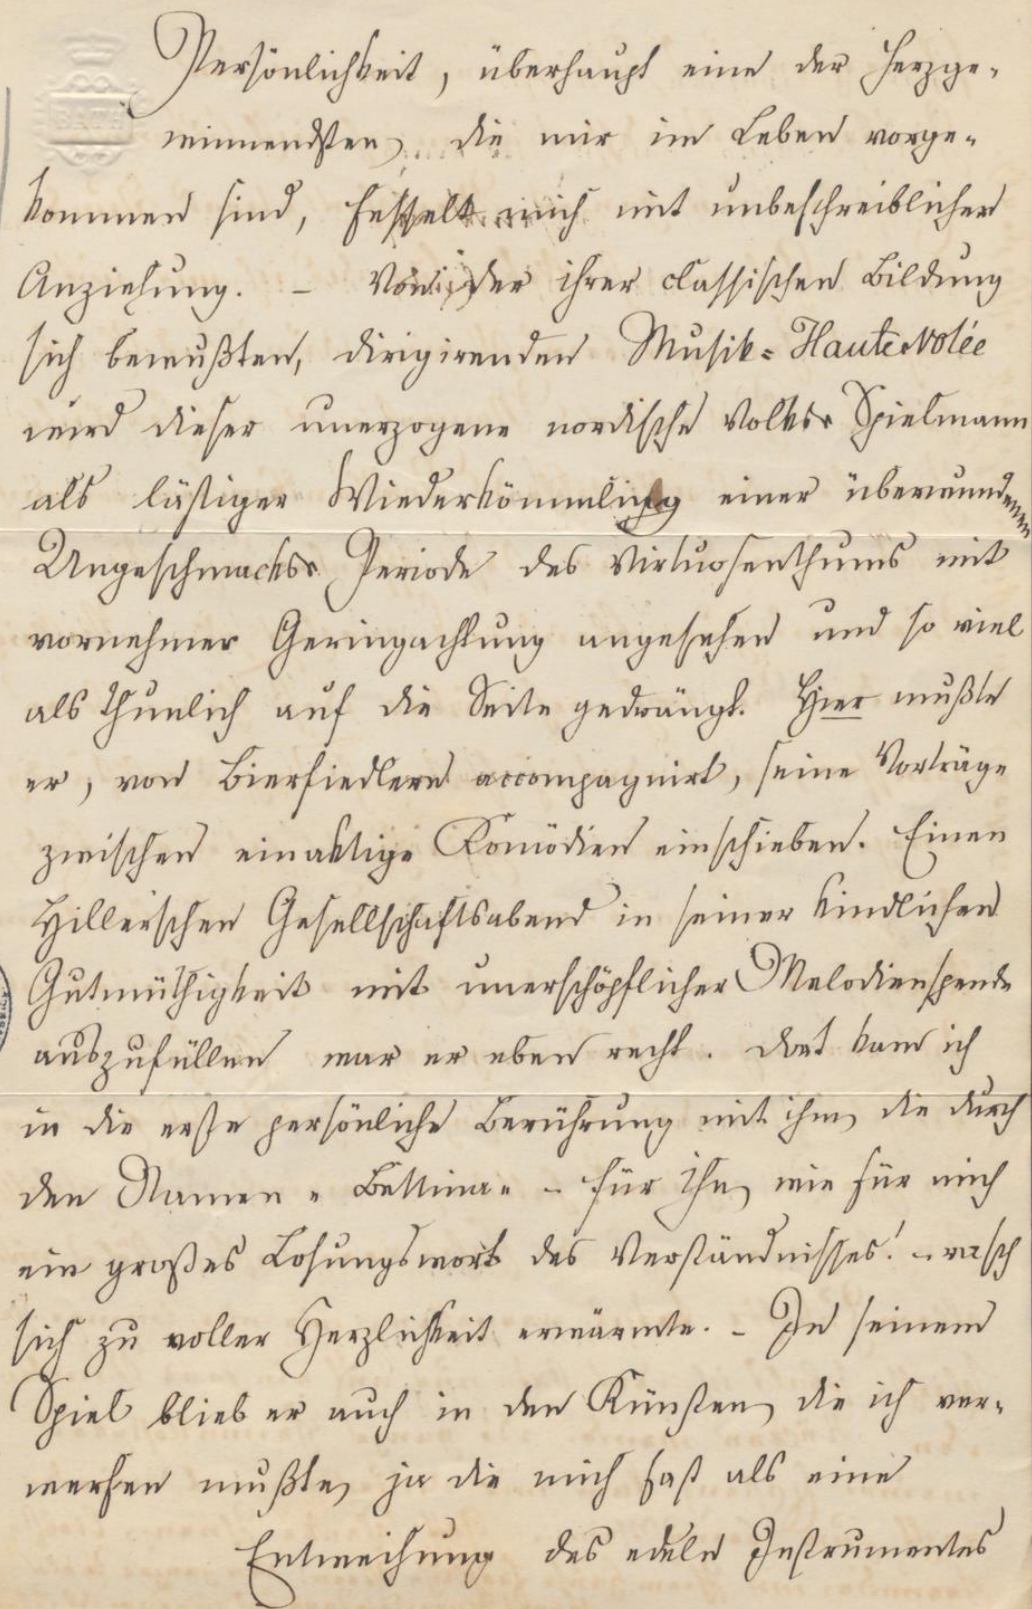 Persönlichkeit, überhaupt eine der Herzge-
winnendsten, die mir im Leben vorge-
kommen sind, fesselt mich mit unbeschreiblicher
Anziehung. – Von der ihrer classischen Bildung
sich bewußten, dirigirenden Musik-Haute-Volée
wird dieser unerzogene nordische Volks-Spielmann
als lästiger Wiederkömmling einer überwundenen
Ungeschmacks-Periode des Virtuosenthums mit
vornehmer Geringachtung angesehen und so viel
als thunlich auf die Seite gedrängt. Hier mußte
er, von Bierfiedlern accompagnirt, seine Vorträge
zwischen einaktige Komödien einschieben. Einen
Hiller'schen Gesellschaftsabend in seiner kindlichen
Gutmüthigkeit mit unerschöpflicher Melodienspende
auszufüllen war er eben recht. Dort kam ich
in die erste persönliche Berührung mit ihm, die durch
den Namen "Bettina" – für Ihn, wie für mich
ein großes Losungswort des Verständnisses! – rasch
sich zu voller Herzlichkeit erwärmte. – In seinem
Spiel blieb er auch in den Künsten, die ich ver-
werfen mußte, ja die mich fast als eine
Entweihung des edeln Instrumentes